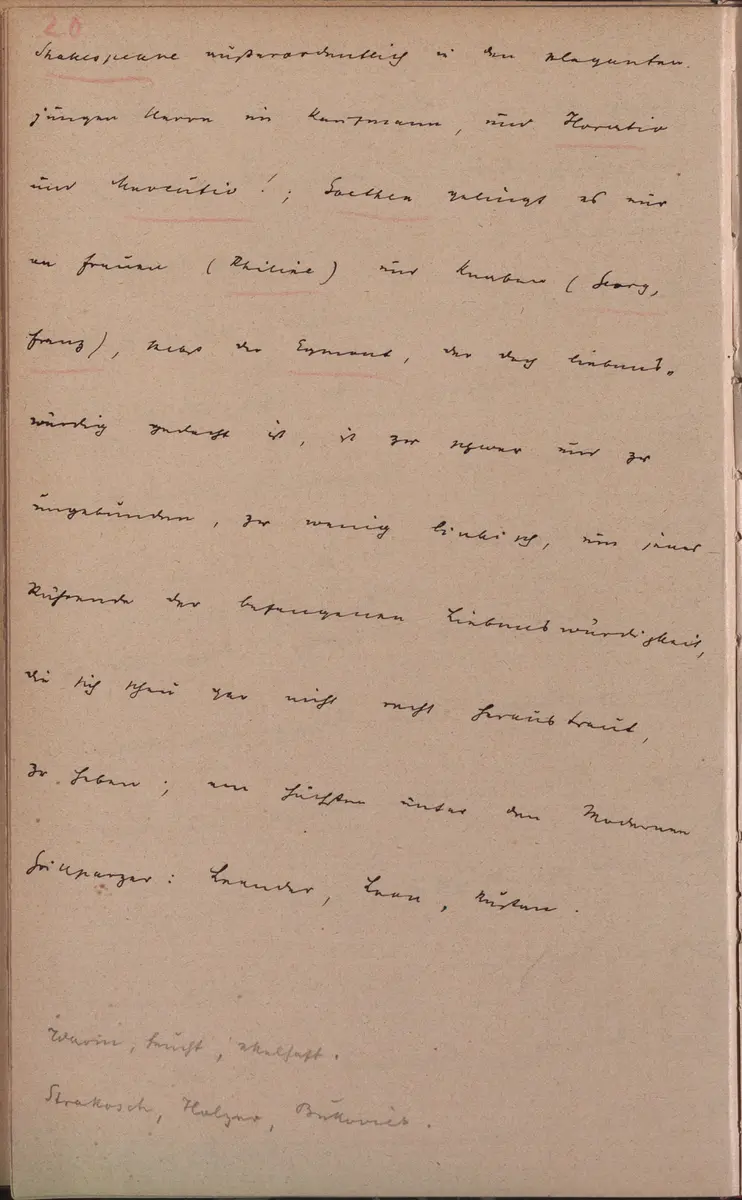 20
Shakespeare außerordentlich in den eleganten
jungen Herrn im Kaufmann, und Horatio
und Mercutio!; Goethen gelingt es nur
an Frauen (Philine) und Knaben (Georg,
Franz), selbst der Egmont, der doch liebens-
würdig gedacht ist, ist zu schwer und zu
ungebunden, zu wenig linkisch, um jenes
Rührende der befangenen Liebenswürdigkeit,
die sich scheu gar nicht recht heraustraut,
zu haben; am hüchsten unter den Modernen
Grillparzer: Leander, Leon, Rustan.
warm, feucht, ekelhaft.
Strakosch, Holzer, Bukovics.